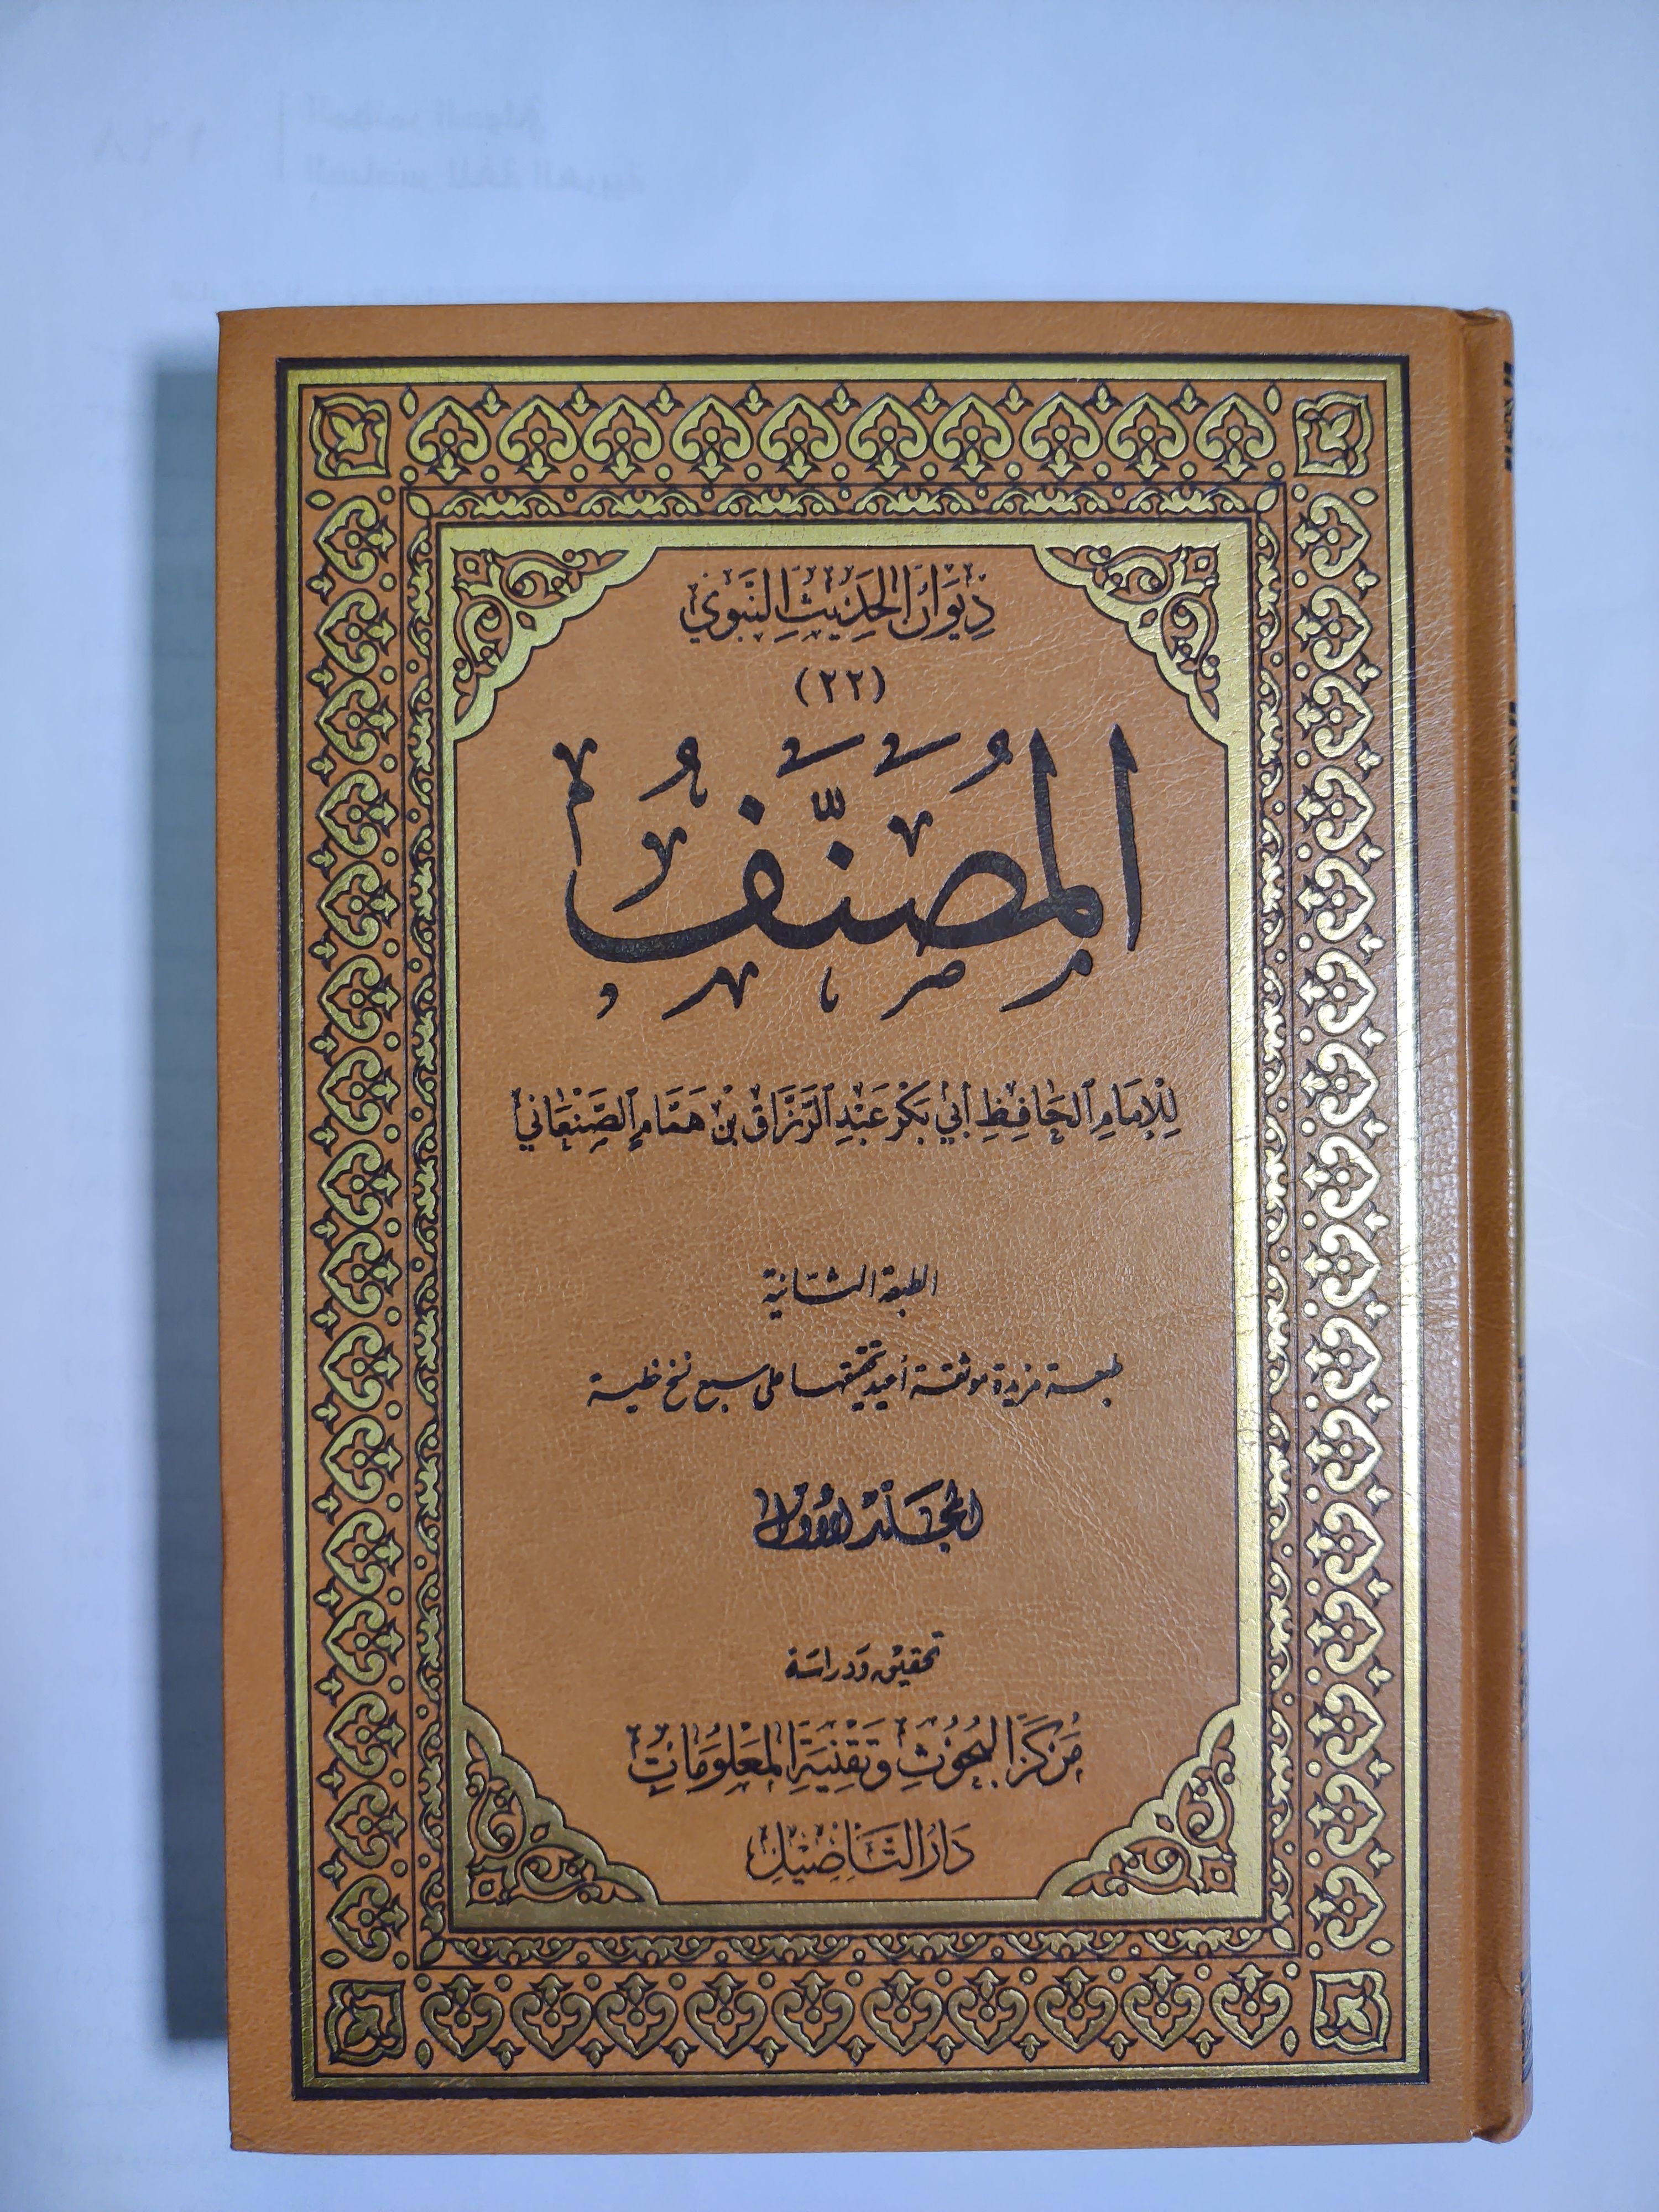 دِيوَانُ الحَدِيثِ النَّبَوِيِّ
(٢٢)
المُصَنَّفُ
لِلْإِمَامِ الحَافِظِ أَبِي بَكْرٍ عَبْدِ الرَّزَّاقِ بْنِ هَمَّامٍ الصَّنْعَانِيِّ
الطبعة الثانية
طبعة مزيدة موثقة أعيد تحقيقها على سبع نسخ خطية
المجَلّد الأوّل
تحقيق وَدراسَة
مَرْكَزُ البُحُوثِ وَتِقْنِيَةِ المَعْلُومَاتِ
دَارُ التَّأْصِيلِ